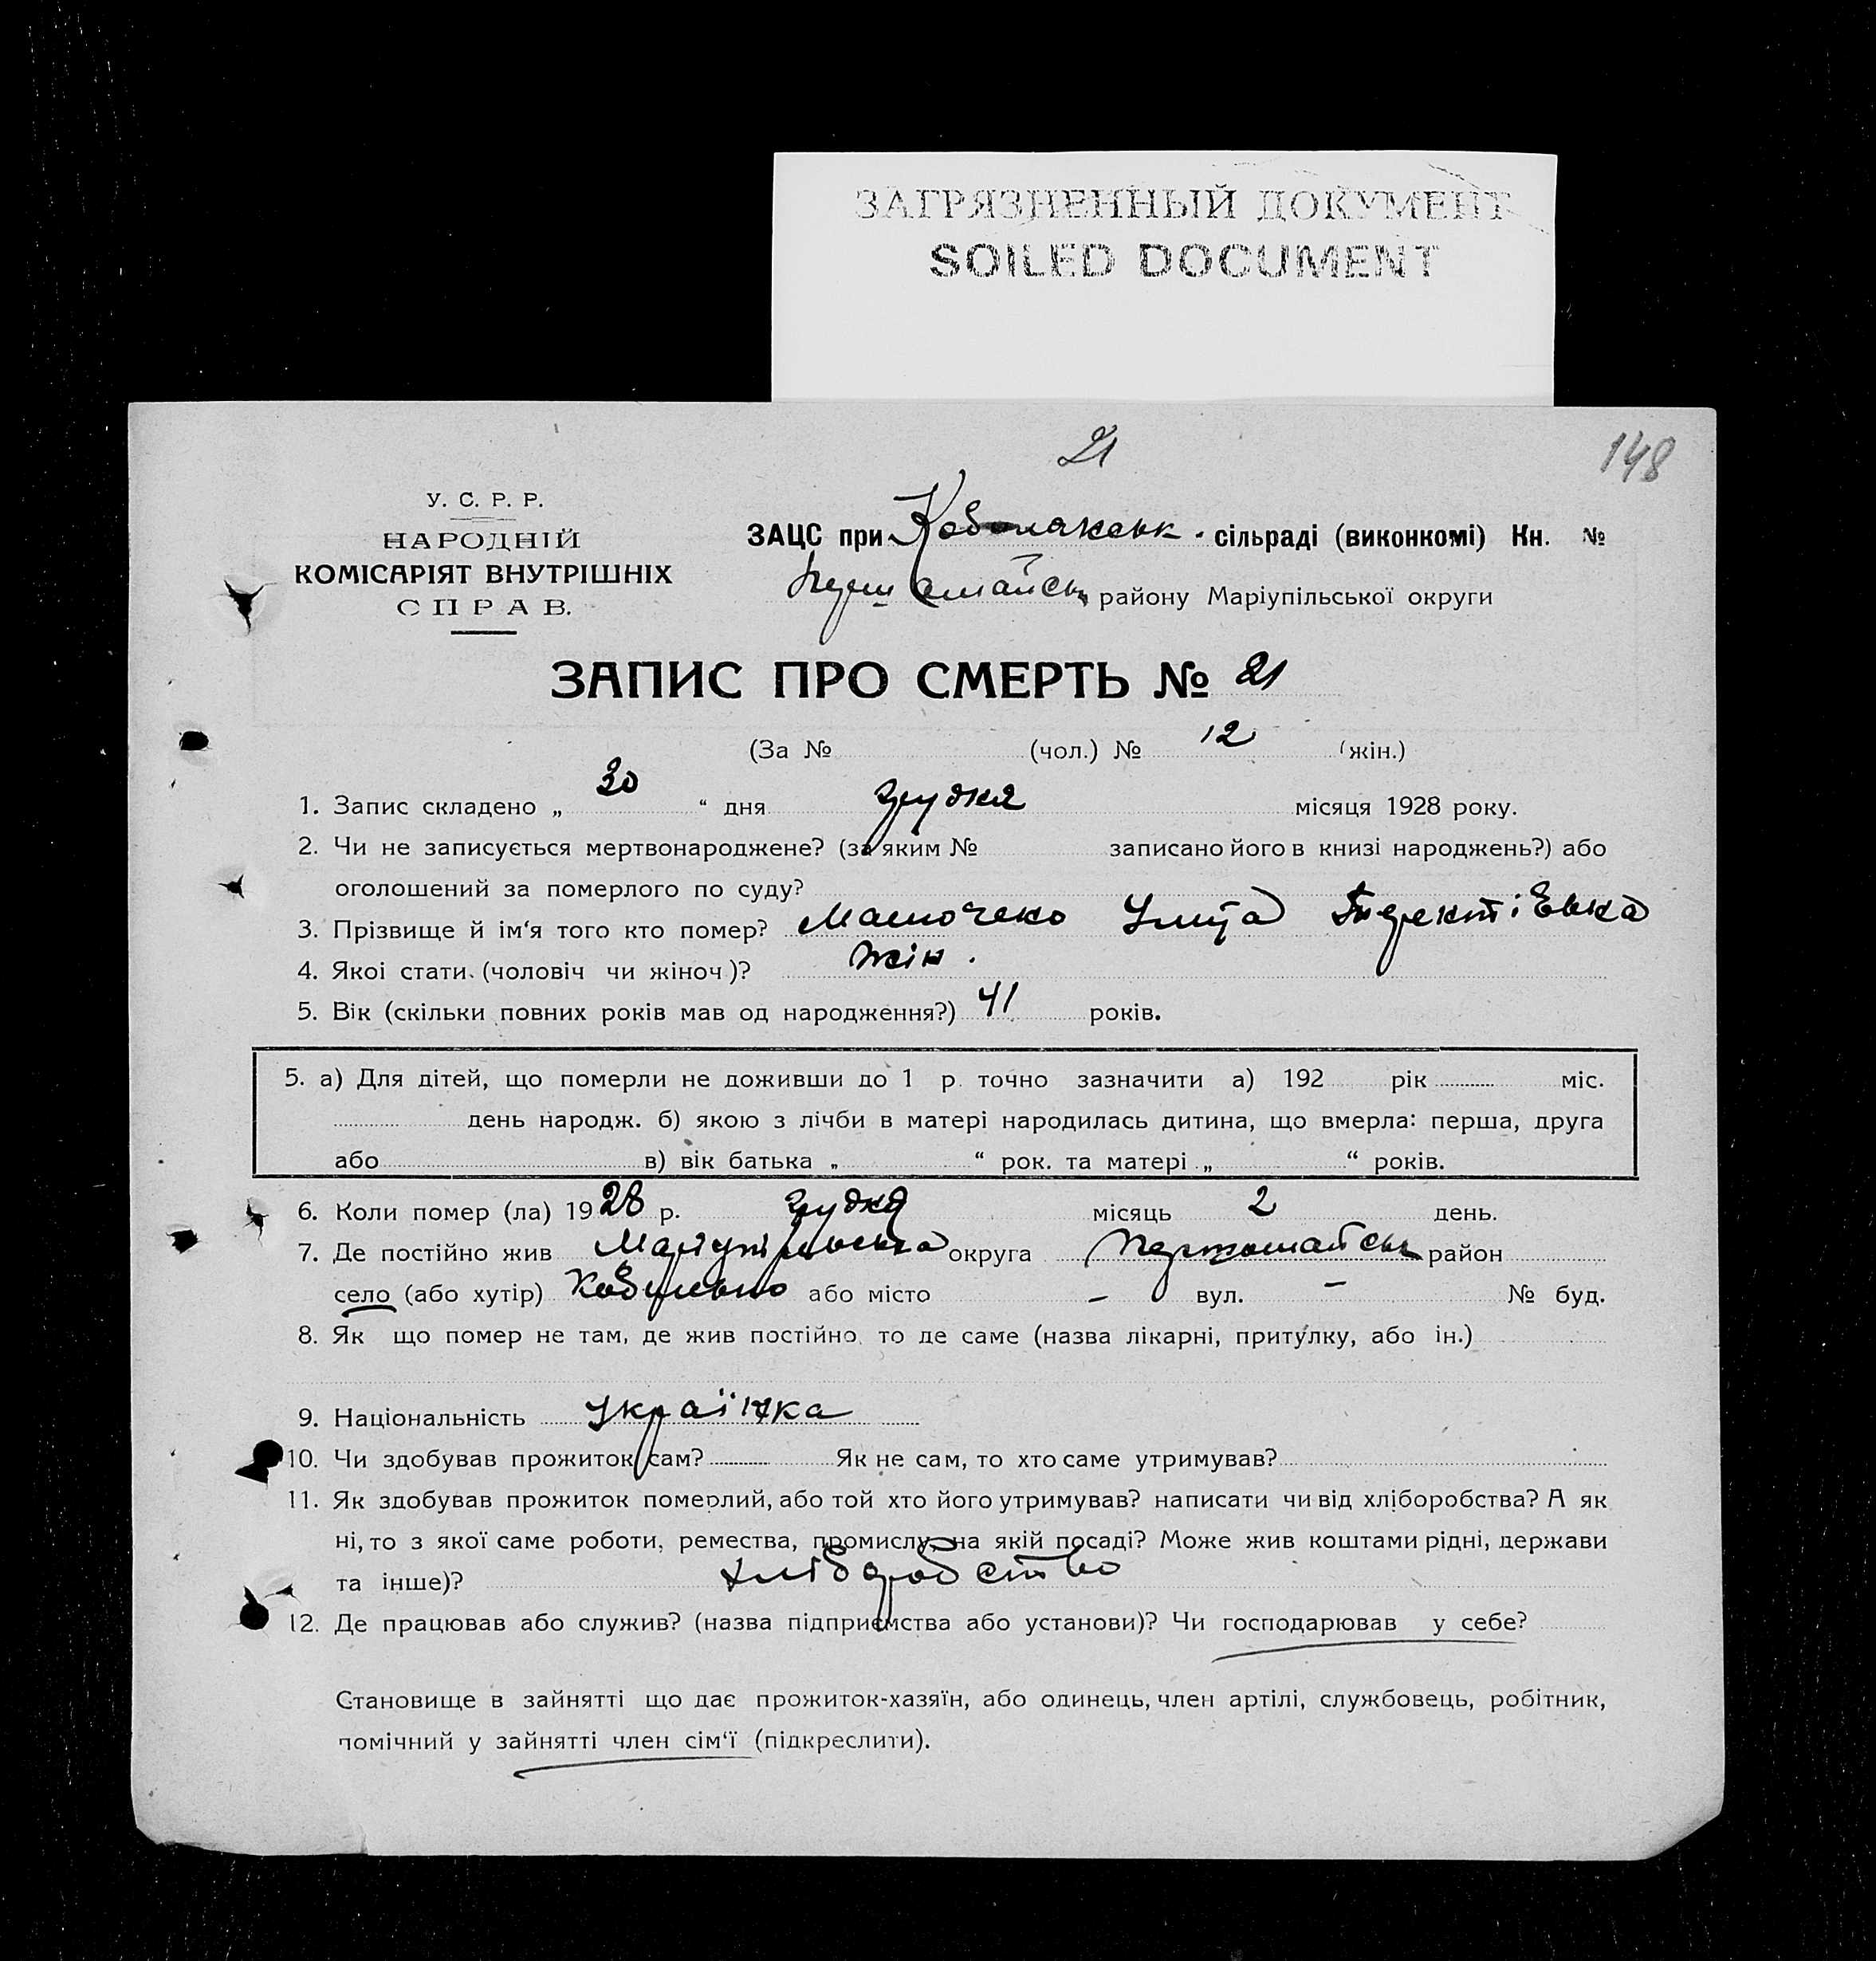 ЗАГРЯЗНЕННЫЙ ДОКУМЕНТ
SOILED DOCUMENT
21
148
У. С. Р. Р.
НАРОДНІЙ
КОМІСАРІЯТ ВНУТРІШНІХ
СПРАВ.
ЗАЦС при сільраді (виконкомі) Кн. №
району Маріупільської округи
ЗАПИС ПРО СМЕРТЬ № 21
(За № (чол.) № 12 (жін.)
1. Запис складено „ 30 “ дня грудня місяця 1928 року.
2. Чи не записується мертвонароджене? (за яким № записано його в книзі народжень?) або
оголошений за померлого по суду?
3. Прізвище й ім‘я того кто помер?
4. Якої стати (чоловіч чи жіноч)? жін.
5. Вік (скільки повних років мав од народження?) 41 років.
5. а) Для дітей, що померли не доживши до 1 р. точно зазначити а) 192 рік міс.
день народж. б) якою з лічби в матері народилась дитина, що вмерла: перша, друга
або в) вік батька „ “ рок. та матері „ “ років.
6. Коли помер (ла) 1928 р. грудня місяць 2 день.
7. Де постійно жив Маріупільська округа Першомайськ район
село (або хутір) або місто – вул. – № буд.
8. Як що помер не там, де жив постійно, то де саме (назва лікарні, притулку, або ін.)
9. Національність Українка
10. Чи здобував прожиток сам? Як не сам, то хто саме утримував?
11. Як здобував прожиток померлий, або той хто його утримував? написати чи від хліборобства? А як
ні, то з якої саме роботи, ремества, промислу, на якій посаді? Може жив коштами рідні, держави
та інше)? хліборобство
12. Де працював або служив? (назва підприємства або установи)? Чи господарював у себе?
Становище в зайнятті що дає прожиток-хазяїн, або одинець, член артілі, службовець, робітник,
помічний у зайнятті член сім‘ї (підкреслити).